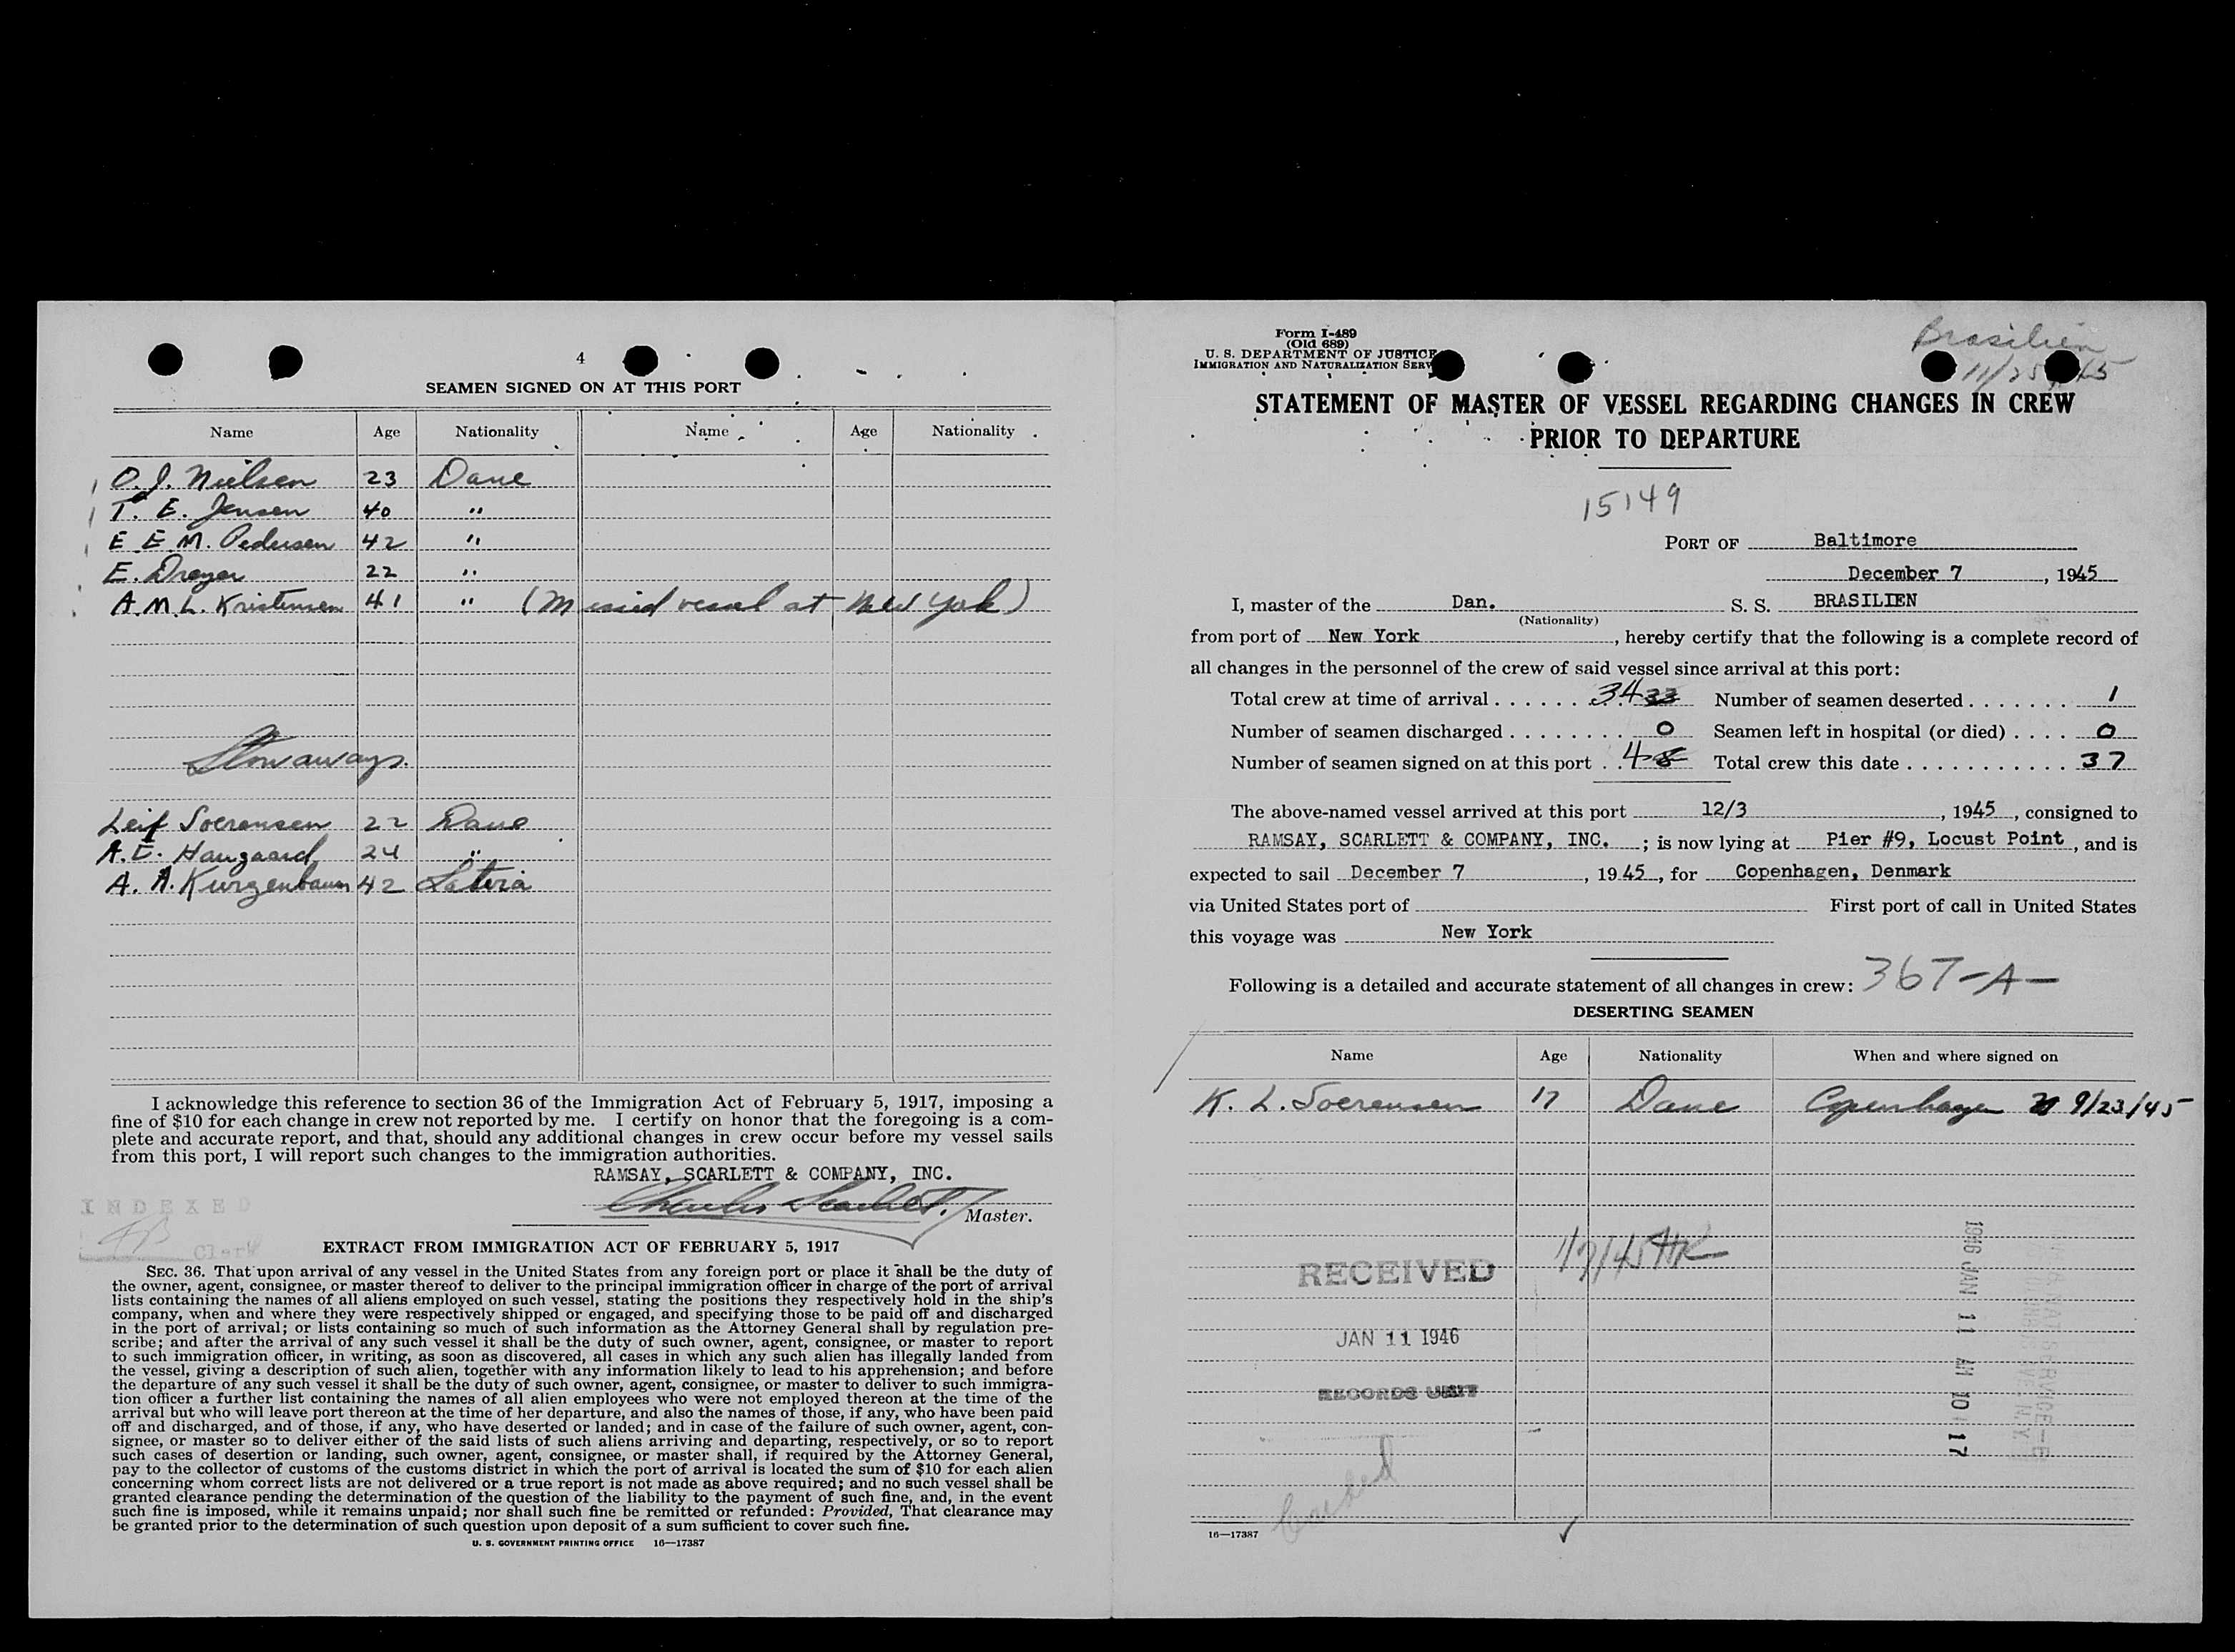 4
SEAMEN SIGNED ON AT THIS PORT
Name Age Nationality Name Age Nationality
O. J. Nielsen 23 Dane
T. E. Jensen 40 "
E. E. M. Pedersen 42 "
E. Dreyer 22 "
A. M. L. Kristensen 41 " (Missed vessel at New York)
Stowaways.
Leif Soerensen 22 Dane
A. E. Haugaard 24 "
A. A. Kurgenbaum 42 Latvia
I acknowledge this reference to section 36 of the Immigration Act of February 5, 1917, imposing a
fine of $10 for each change in crew not reported by me. I certify on honor that the foregoing is a com-
plete and accurate report, and that, should any additional changes in crew occur before my vessel sails
from this port, I will report such changes to the immigration authorities.
RAMSAY, SCARLETT & COMPANY, INC.
Charles Scarlett.
Master.
INDEXED
Clerk
EXTRACT FROM IMMIGRATION ACT OF FEBRUARY 5, 1917
SEC. 36. That upon arrival of any vessel in the United States from any foreign port or place it shall be the duty of
the owner, agent, consignee, or master thereof to deliver to the principal immigration officer in charge of the port of arrival
lists containing the names of all aliens employed on such vessel, stating the positions they respectively hold in the ship's
company, when and where they were respectively shipped or engaged, and specifying those to be paid off and discharged
in the port of arrival; or lists containing so much of such information as the Attorney General shall by regulation pre-
scribe; and after the arrival of any such vessel it shall be the duty of such owner, agent, consignee, or master to report
to such immigration officer, in writing, as soon as discovered, all cases in which any such alien has illegally landed from
the vessel, giving a description of such alien, together with any information likely to lead to his apprehension; and before
the departure of any such vessel it shall be the duty of such owner, agent, consignee, or master to deliver to such immigra-
tion officer a further list containing the names of all alien employees who were not employed thereon at the time of the
arrival but who will leave port thereon at the time of her departure, and also the names of those, if any, who have been paid
off and discharged, and of those, if any, who have deserted or landed; and in case of the failure of such owner, agent, con-
signee, or master so to deliver either of the said lists of such aliens arriving and departing, respectively, or so to report
such cases of desertion or landing, such owner, agent, consignee, or master shall, if required by the Attorney General,
pay to the collector of customs of the customs district in which the port of arrival is located the sum of $10 for each alien
concerning whom correct lists are not delivered or a true report is not made as above required; and no such vessel shall be
granted clearance pending the determination of the question of the liability to the payment of such fine, and, in the event
such fine is imposed, while it remains unpaid; nor shall such fine be remitted or refunded: Provided, That clearance may
be granted prior to the determination of such question upon deposit of a sum sufficient to cover such fine.
U. S. GOVERNMENT PRINTING OFFICE 16—17387
Form I-489
(Old 689)
U. S. DEPARTMENT OF JUSTICE
IMMIGRATION AND NATURALIZATION SERV
Brasilien
11/25/45
STATEMENT OF MASTER OF VESSEL REGARDING CHANGES IN CREW
PRIOR TO DEPARTURE
15149
PORT OF Baltimore
December 7, 1945
I, master of the Dan. S. S. BRASILIEN
(Nationality)
from port of New York, hereby certify that the following is a complete record of
all changes in the personnel of the crew of said vessel since arrival at this port:
Total crew at time of arrival 34 33 Number of seamen deserted 1
Number of seamen discharged 0 Seamen left in hospital (or died) 0
Number of seamen signed on at this port 4 8 Total crew this date 37
The above-named vessel arrived at this port 12/3, 1945, consigned to
RAMSAY, SCARLETT & COMPANY, INC.; is now lying at Pier #9, Locust Point, and is
expected to sail December 7, 1945, for Copenhagen, Denmark
via United States port of First port of call in United States
this voyage was New York
Following is a detailed and accurate statement of all changes in crew: 367-A-
DESERTING SEAMEN
Name Age Nationality When and where signed on
K. L. Soerensen 17 Dane Copenhagen 9/23/45
RECEIVED
JAN 11 1946
RECORDS UNIT
1946 JAN 11 AM 10 17
Carded
16—17387